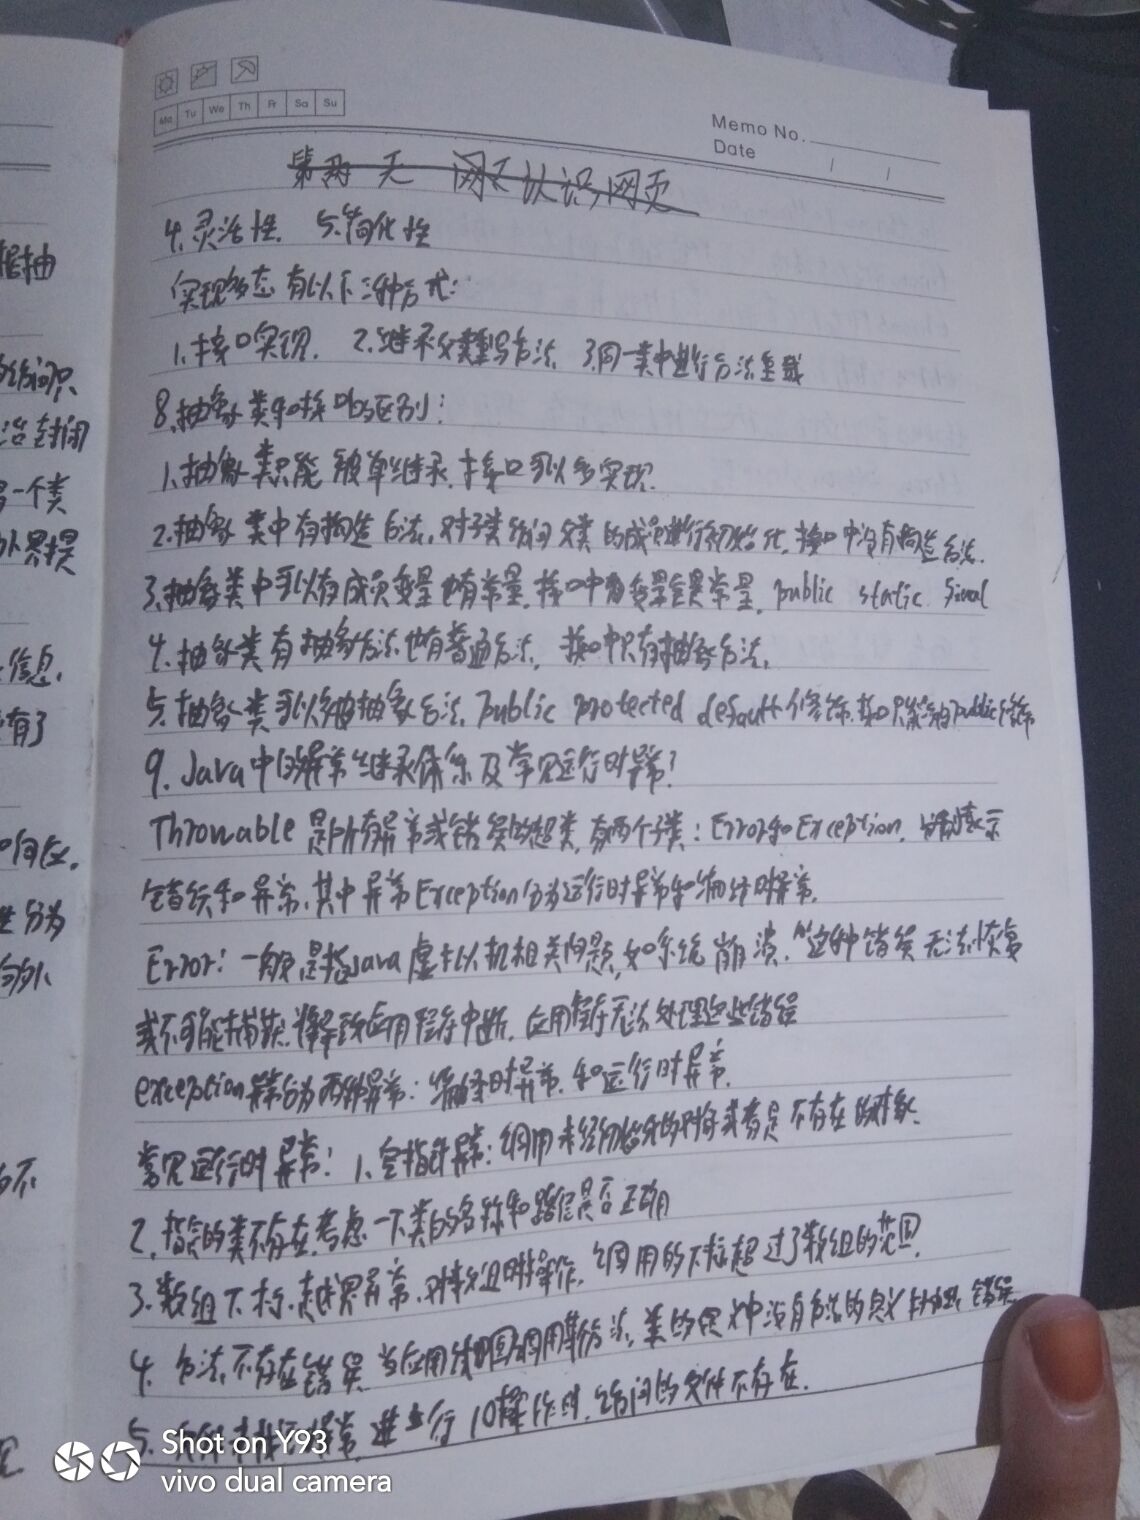 Mo Tu We Th Fr Sa Su
Memo No.
Date / /
第两天 网天认识网页
4.灵活性. 5.简化性
实现多态有以下三种方式:
1.接口实现. 2.继承父类重写方法. 3.同一类中进行方法重载
8.抽象类和接口的区别:
1.抽象类只能被单继承.接口可以多实现.
2.抽象类中有构造方法,对子类访问父类的成员进行初始化,接口中没有构造方法.
3.抽象类中可以有成员变量也有常量,接口中变量是常量, public static final
4.抽象类有抽象方法也有普通方法, 接口中只有抽象方法,
5.抽象类可以抽象方法, public protected default修饰.接口只能public修饰
9.Java中的异常继承体系及常见运行时异常?
Throwable是所有异常或错误的超类,有两个子类:Error和Exception,分别表示
错误和异常,其中异常Exception分为运行时异常和编译时异常.
Error:一般是指Java虚拟机相关问题,如系统崩溃.这种错误无法恢复
或不可能捕获.将导致应用程序中断,应用程序无法处理这些错误
exception分为两种异常:编译时异常.和运行时异常.
常见运行时异常:1.空指针异常:调用未经初始化的对象或者是不存在的对象.
2.指定的类不存在,考虑一下类的名称和路径是否正确
3.数组下标.越界异常.对数组时操作,调用的下标超过了数组的范围.
4.方法不存在错误.当应用调用方法,类的定义中没有方法的定义 错误
5.文件 异常,进行IO操作时.访问的文件不存在.
括抽
访问只
封闭
一个类
外界提
信息.
有了
何位.
分为
不
Shot on Y93
vivo dual camera